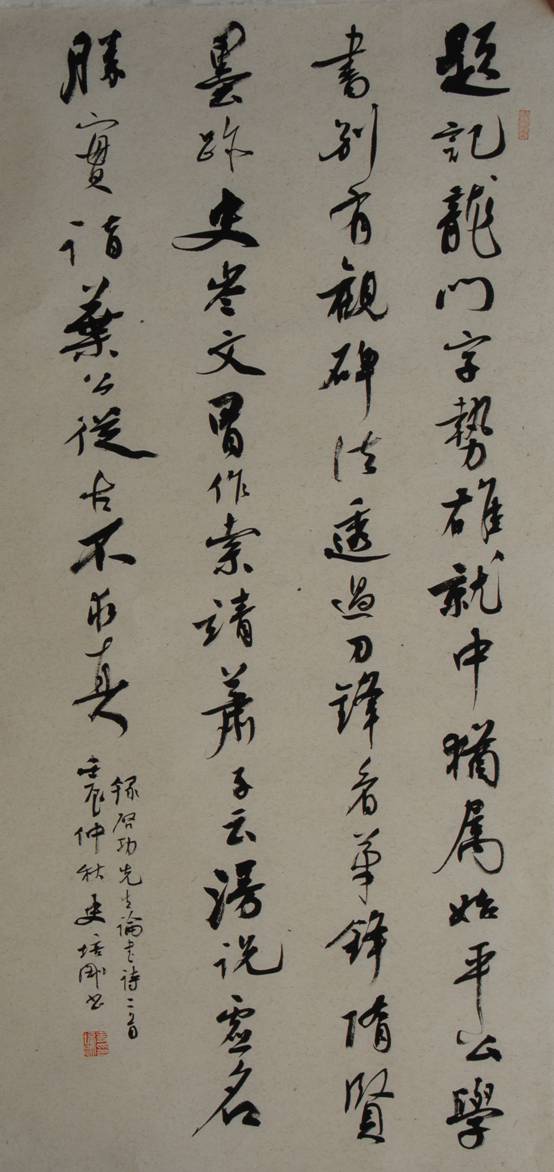 題記龍門字勢雄就中猶属始平公學
書別有觀碑法透過刀鋒看筆鋒隋賢
墨跡史岑文冒作索靖蕭子云漫説虛名
勝實詣葉公從古不求真
錄啓功先生論書詩二首
壬辰仲秋史培剛書